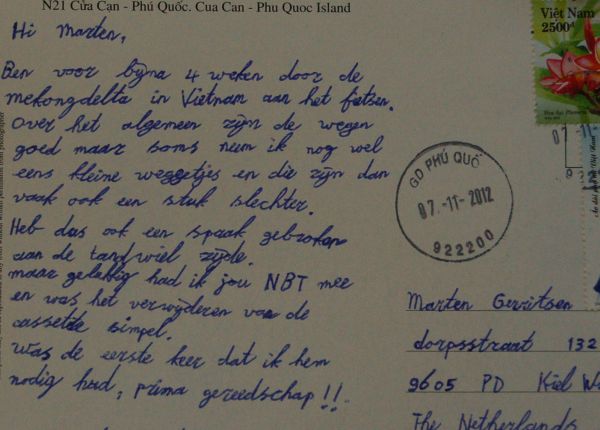 N21 Cửa Cạn - Phú Quốc. Cua Can - Phu Quoc Island
Hi Marten,
Ben voor bijna 4 weken door de
mekongdelta in Vietnam aan het fietsen.
Over het algemeen zijn de wegen
goed maar soms neem ik nog wel
eens kleine weggetjes en die zijn dan
vaak ook een stuk slechter.
Heb dus ook een spaak gebroken
aan de tandwiel zijde.
maar gelukkig had ik jou NBT mee
en was het verwijderen van de
cassette simpel.
Was de eerste keer dat ik hem
nodig had, prima gereedschap!!
Việt Nam
2500đ
07-11
GD PHÚ QUỐC
07-11-2012
922200
Marten Gerritsen
dorpsstraat 132
9605 PD Kiel W
The Netherlands